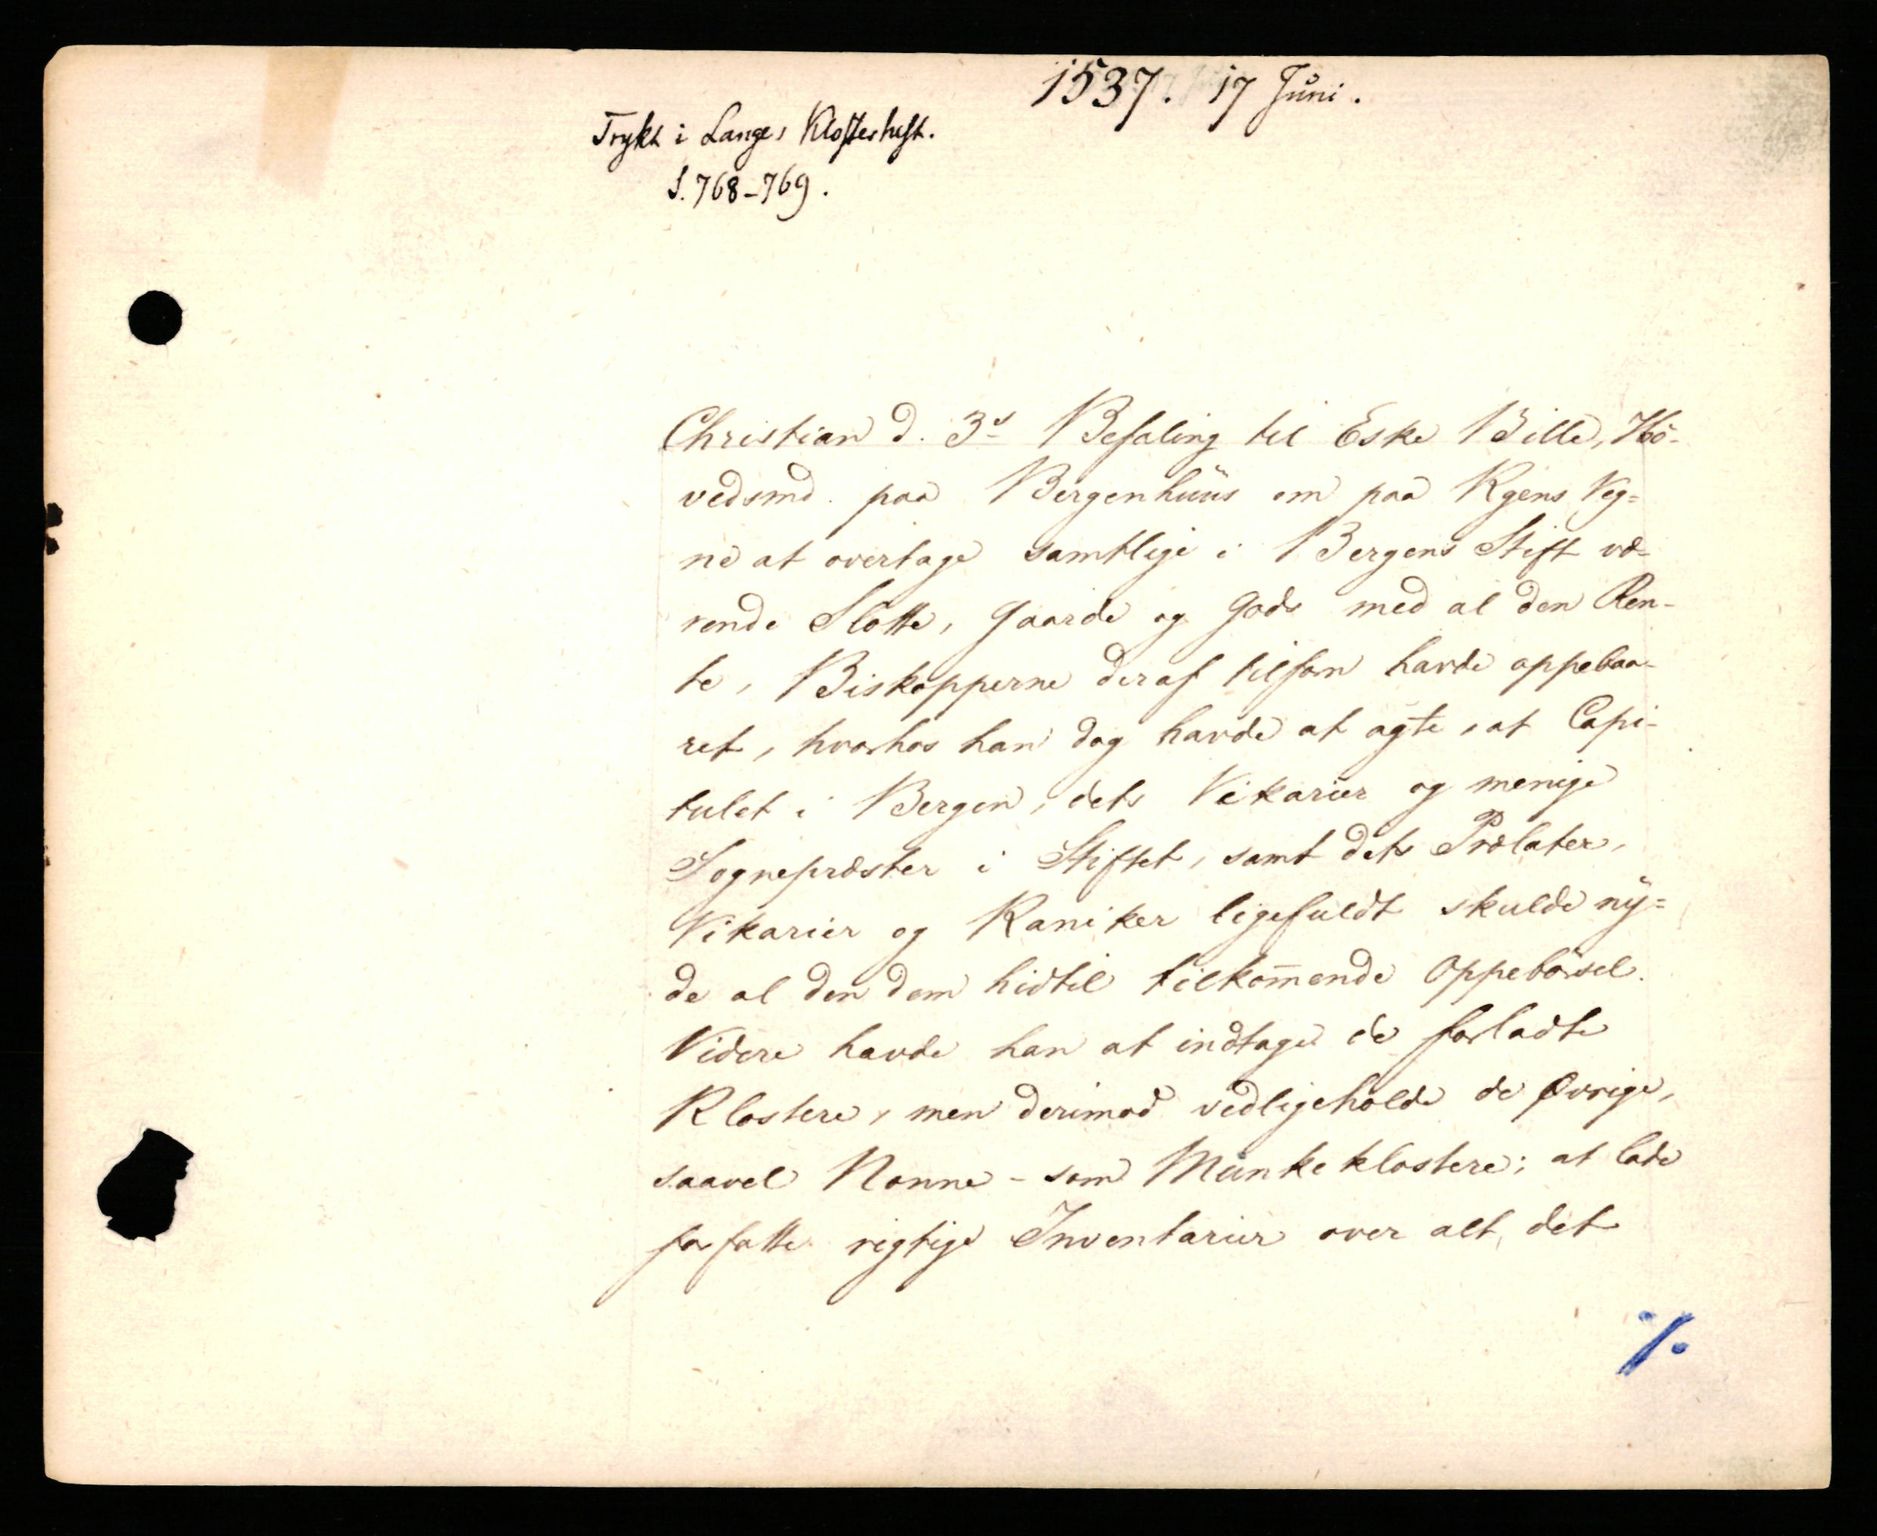 1537. 17 Juni.
Trykt i Langes Klosterhist.
S. 768-769.
Christian d. 3s Befaling til Eske Bille, Hö-
vedsmd. paa Bergenhuus om paa Kgens Veg=
ne at overtage samtlige i Bergens Stift væ-
rende Slotte, Gaarde og Gods med al den Ren-
te, Biskopperne deraf tilforn havde oppebaa-
ret, hvorhos han dog havde at agte, at Capi-
tulet i Bergen, dets Vikarier og menige
Sognepræster i Stiftet, samt dets Prælater,
Vikarier og Kaniker ligefuldt skulde ny=
de al den dem hidtil tilkom̄ende Oppebörsel.
Videre havde han at indtage de forladte
Klostere, men derimod vedligeholde de Øvrige,
saavel Nonne- som Munkeklostere; at lade
forfatte rigtige Inventarier over alt det
./.